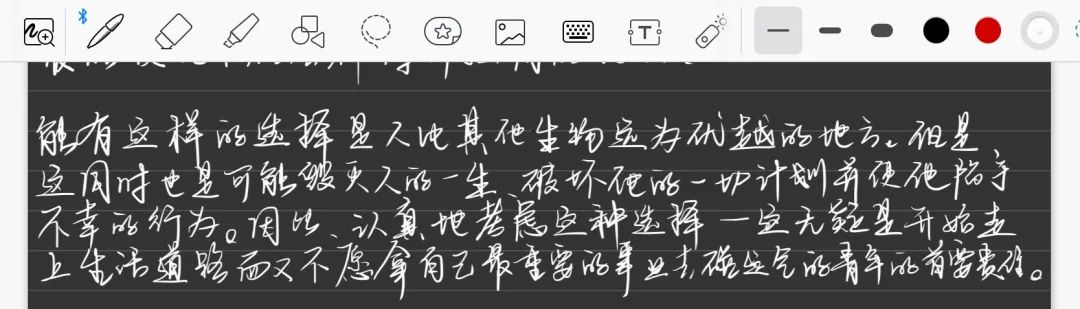 能有这样的选择是人比其他生物远为优越的地方。但是,
这同时也是可能毁灭人的一生、破坏他的一切计划并使他陷于
不幸的行为。因此、认真地考虑这种选择一定无疑是开始走
上生活道路而又不愿拿自己最重要的事业去碰运气的青年的首要责任。